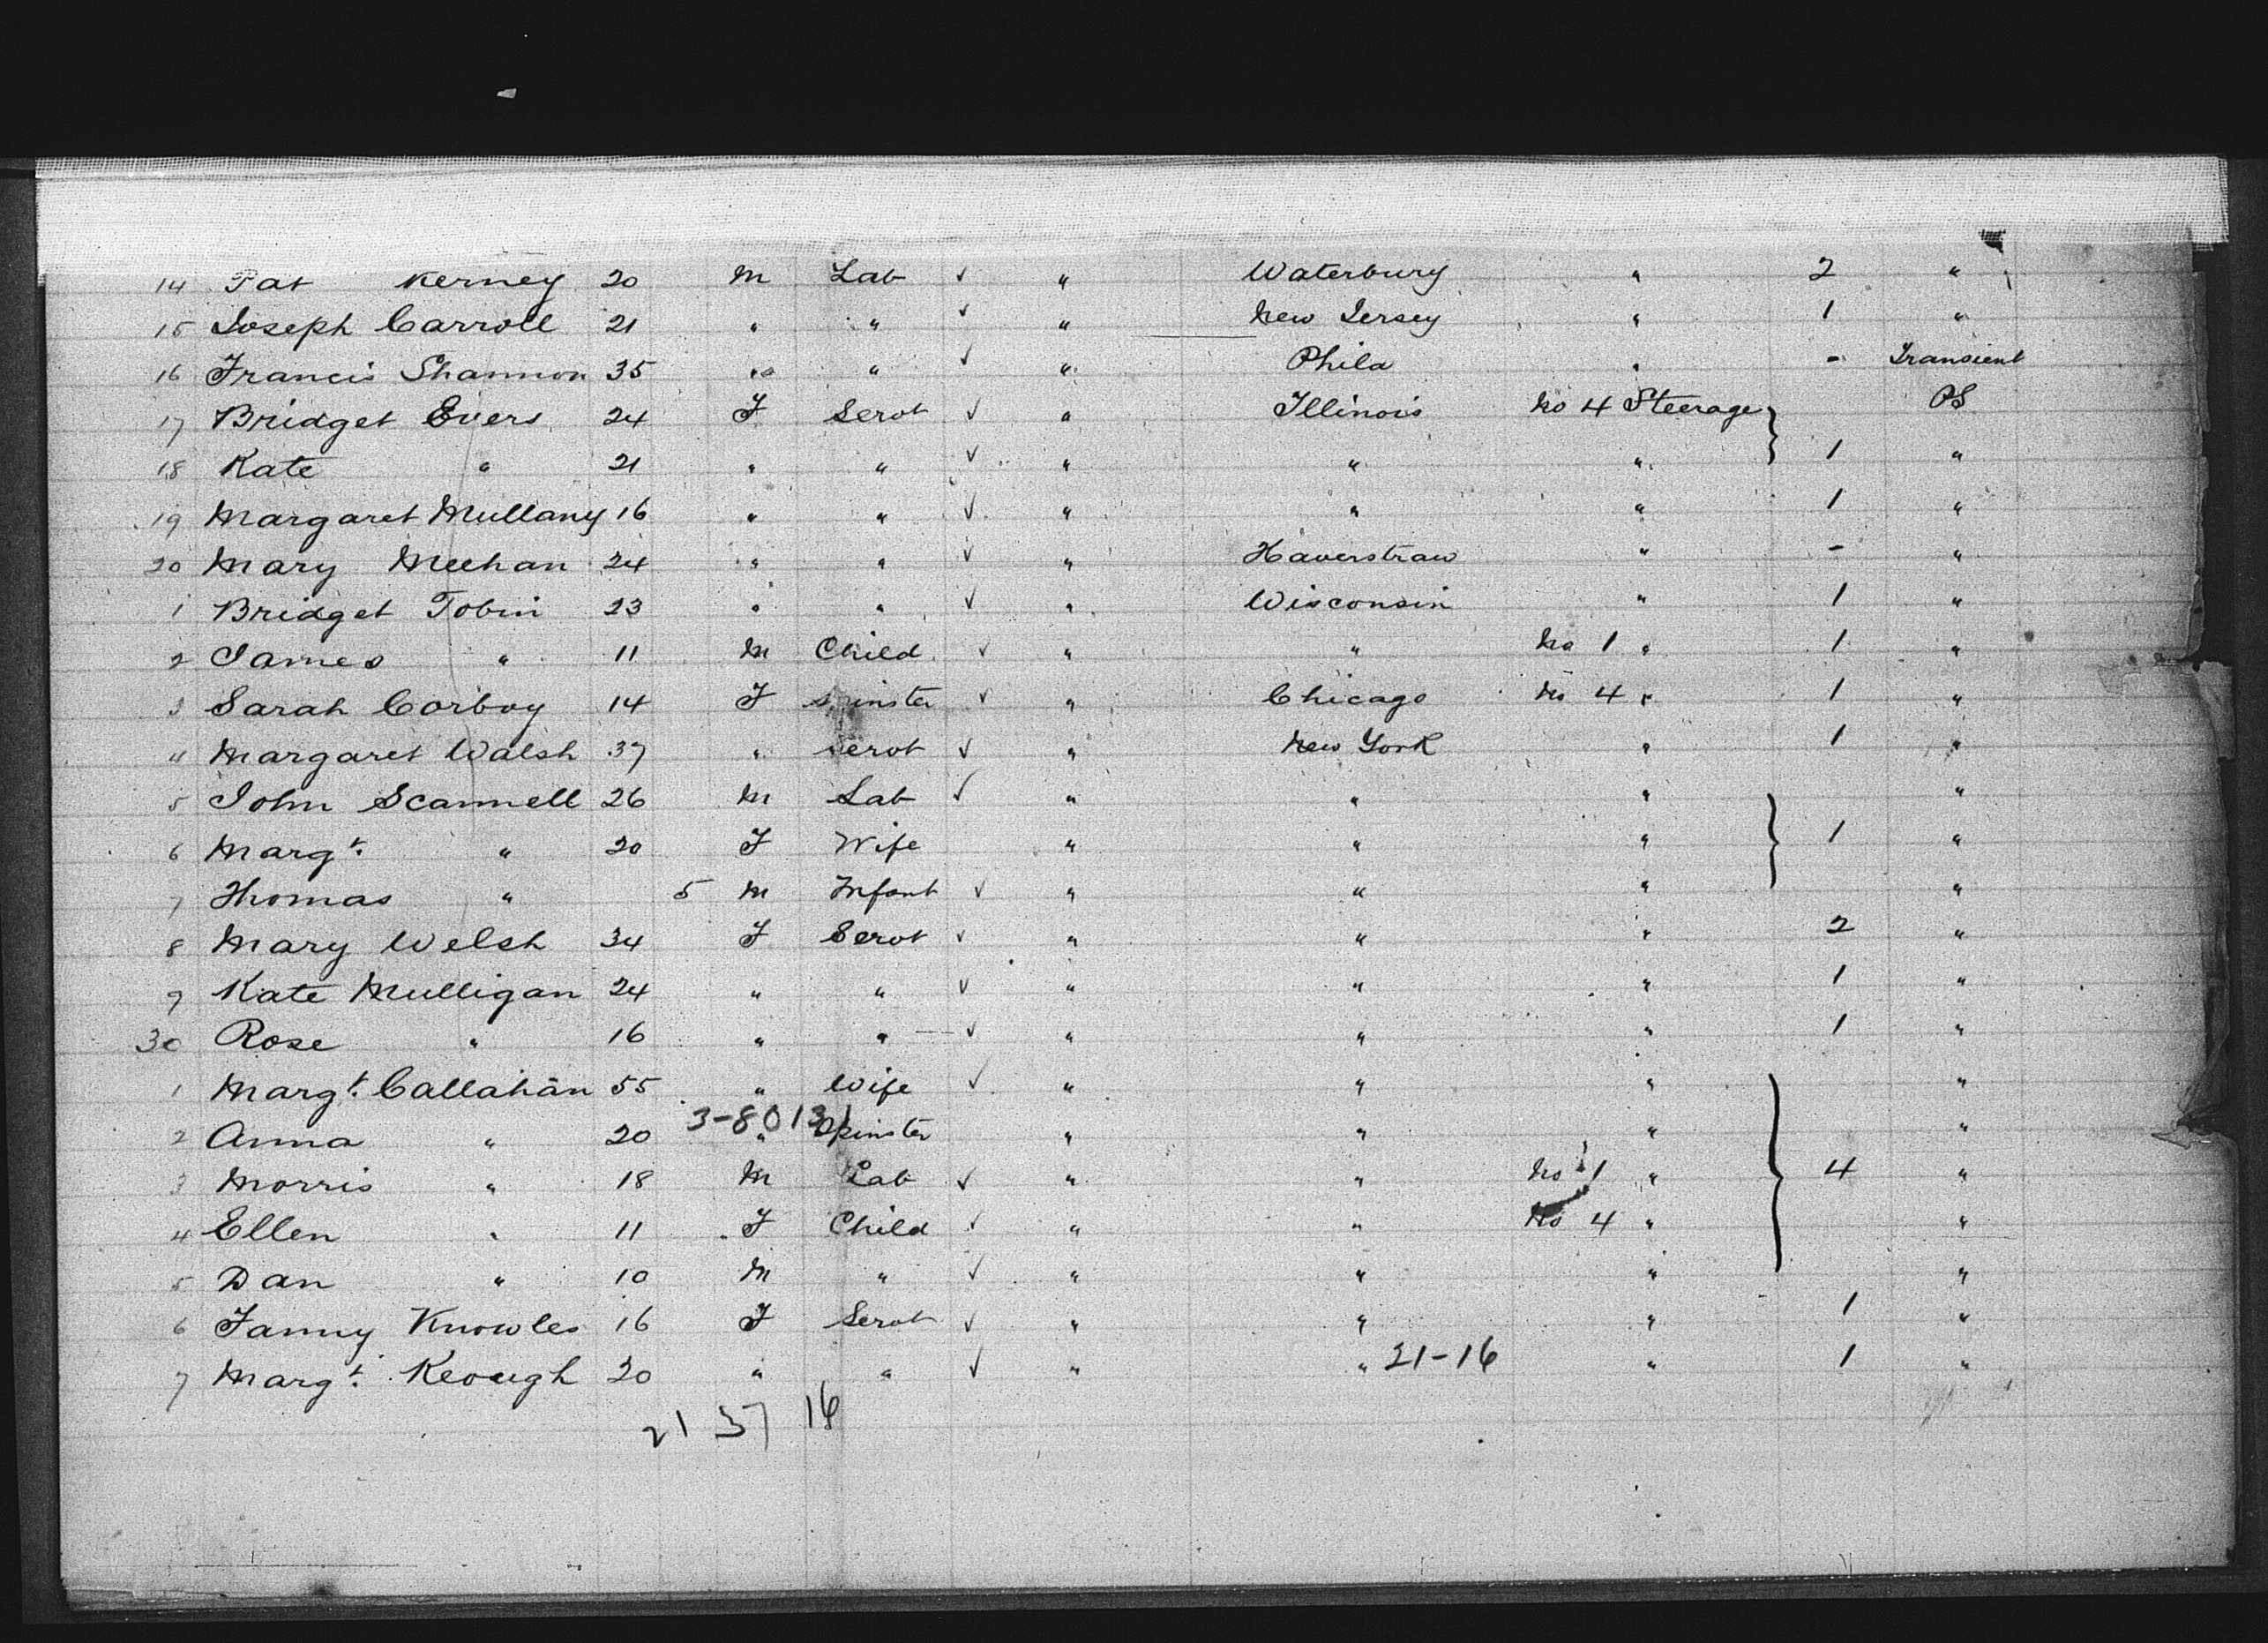 14 Pat Kerney 20 M Lab ✓ " Waterbury " 2 "
15 Joseph Carroll 21 " " ✓ " New Jersey " 1 "
16 Francis Shannon 35 " " ✓ " Phila " - Transient
17 Bridget Evers 24 F Servt ✓ " Illinois No 4 Steerage PS
18 Kate " 21 " " ✓ " " " 1 "
19 Margaret Mullany 16 " " ✓ " " " 1 "
20 Mary Meehan 24 " " ✓ " Haverstraw " - "
1 Bridget Tobin 23 " " ✓ " Wisconsin " 1 "
2 James " 11 M Child ✓ " " No 1 " 1 "
3 Sarah Corboy 14 F Spinster ✓ " Chicago No 4 " 1 "
4 Margaret Walsh 37 " Servt ✓ " New York " 1 "
5 John Scannell 26 M Lab ✓ " " " "
6 Margt. " 20 F Wife " " " 1 "
7 Thomas " 5 M Infant ✓ " " " "
8 Mary Welsh 34 F Servt ✓ " " " 2 "
9 Kate Mulligan 24 " " ✓ " " " 1 "
30 Rose " 16 " " ✓ " " " 1 "
1 Margt. Callahan 55 " Wife ✓ " " " "
3-80131
2 Anna " 20 " Spinster " " " "
3 Morris " 18 M Lab ✓ " " No 1 " 4 "
4 Ellen " 11 F Child ✓ " " No 4 " "
5 Dan " 10 M " ✓ " " " "
6 Fanny Knowles 16 F Servt ✓ " " " 1 "
7 Margt. Keough 20 " " ✓ " " 21-16 " 1 "
21 37 16